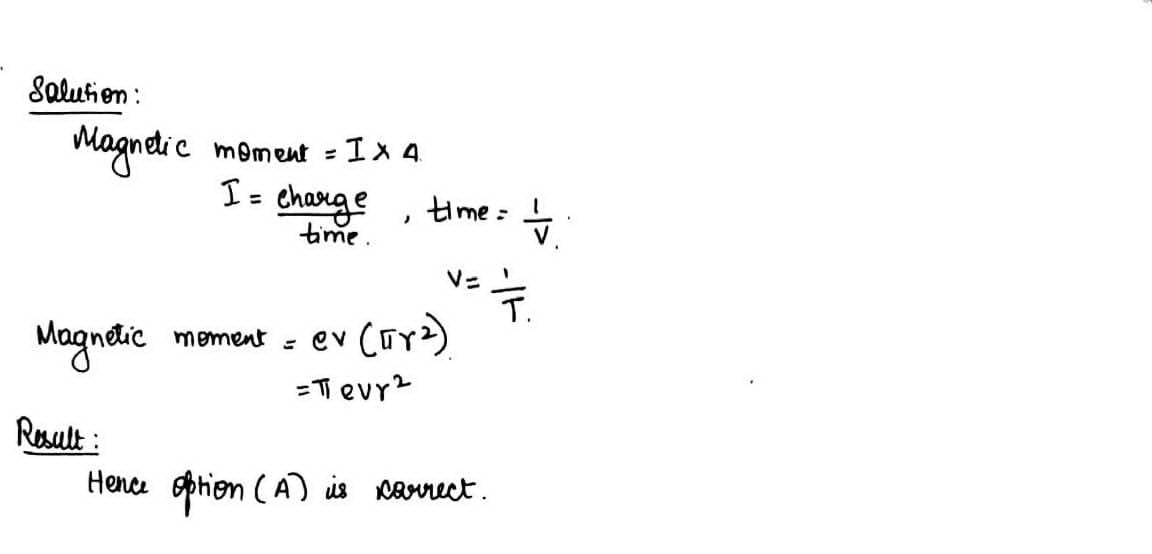 Solution:
Magnetic moment = I × A
I = charge / time. , time = 1/ν.
ν = 1/T.
Magnetic moment = eν (πr²)
= π eνr²
Result:
Hence option (A) is correct.